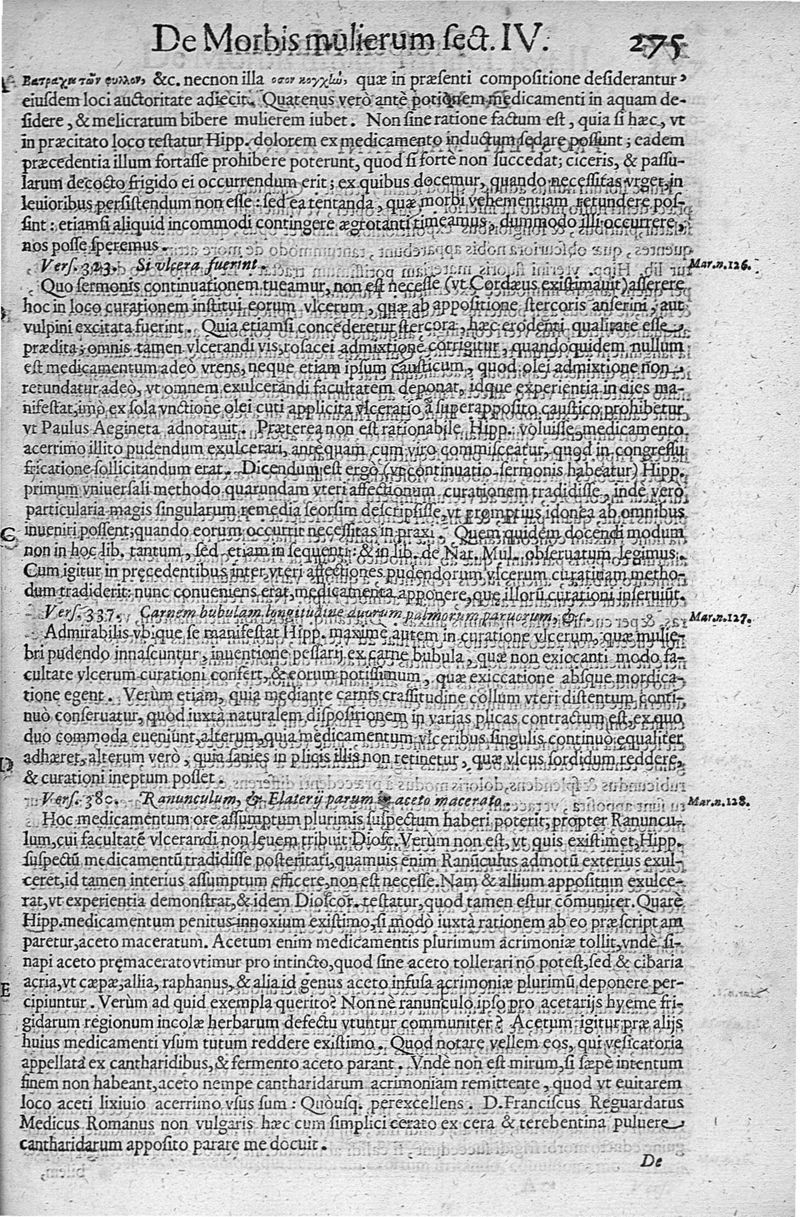 De Morbis mulierum sect. IV. 275
Βατραχιτῶν φύλλον, &c. necnon illa ὅσον κογχίω, quæ in præsenti compositione desiderantur,
eiusdem loci auctoritate adiecit. Quatenus verò antè potionem medicamenti in aquam de-
sidere, & melicratum bibere mulierem iubet. Non sine ratione factum est, quia si hæc, vt
in præcitato loco testatur Hipp. dolorem ex medicamento inductum sedare possunt; eadem
præcedentia illum fortasse prohibere poterunt, quod si fortè non succedat; ciceris, & passu-
larum decocto frigido ei occurrendum erit; ex quibus docemur, quando necessitas vrget, in
leuioribus persistendum non esse: sed ea tentanda, quæ morbi vehementiam retundere pos-
sint: etiamsi aliquid incommodi contingere ægrotanti timeamus, dummodo illi occurrere,
nos posse speremus.
Vers. 323. Si vlcera fuerint. Mar.n.126.
Quo sermonis continuationem tueamur, non est necesse (vt Cordæus existimauit) asserere
hoc in loco curationem institui eorum vlcerum, quæ ab appositione stercoris anserini, aut
vulpini excitata fuerint. Quia etiamsi concederetur stercora, hæc erodenti qualitate esse
prædita; omnis tamen vlcerandi vis, rosacei admixtione corrigitur, quandoquidem nullum
est medicamentum adeò vrens, neque etiam ipsum causticum, quod olei admixtione non
retundatur adeò, vt omnem exulcerandi facultatem deponat, idque experientia in dies ma-
nifestat, imò ex sola vnctione olei cuti applicita vlceratio à superapposito caustico prohibetur
vt Paulus Aegineta adnotauit. Præterea non est rationabile Hipp. voluisse medicamento
acerrimo illito pudendum exulcerari, antequam cum viro commisceatur, quod in congressu
fricatione sollicitandum erat. Dicendum est ergò (vt continuatio sermonis habeatur) Hipp.
primum vniuersali methodo quarundam vteri affectionum curationem tradidisse, indè verò
particularia magis singularum remedia seorsim descripsisse, vt promptius idonea ab omnibus
C inueniri possent; quando eorum occurrit necessitas in praxi. Quem quidem docendi modum
non in hoc lib. tantum, sed etiam in sequenti: & in lib. de Nat. Mul. obseruatum legimus.
Cum igitur in precedentibus inter vteri affectiones pudendorum vlcerum curatiuam metho-
dum tradiderit: nunc conueniens erat, medicamenta apponere, que illorū curationi inseruiūt.
Vers. 337. Carnem bubulam longitudine duorum palmorum paruorum, &c. Mar.n.127.
Admirabilis vbique se manifestat Hipp. maximè autem in curatione vlcerum, quæ mulie-
bri pudendo innascuntur, inuentione pessarij ex carne bubula, quæ non exiccanti modo fa-
cultate vlcerum curationi confert, & eorum potissimum, quæ exiccatione absque mordica-
tione egent. Verùm etiam, quia mediante carnis crassitudine collum vteri distentum conti-
nuò conseruatur, quòd iuxtà naturalem dispositionem in varias plicas contractum est, ex quo
duo commoda eueniunt, alterum, quia medicamentum vlceribus singulis continuò equaliter
D adhæret, alterum verò, quia sanies in plicis illis non retinetur, quæ vlcus sordidum reddere,
& curationi ineptum posset.
Vers. 380. Ranunculum, & Elaterij parum aceto macerato. Mar.n.128.
Hoc medicamentum ore assumptum plurimis suspectum haberi poterit; propter Ranuncu-
lum, cui facultatē vlcerandi non leuem tribuit Diosc. Verùm non est, vt quis existimet, Hipp.
suspectū medicamentū tradidisse posteritati, quamuis enim Ranūculus admotū exterius exul-
ceret, id tamen interius assumptum efficere, non est necesse. Nam & allium appositum exulce-
rat, vt experientia demonstrat, & idem Dioscor. testatur, quod tamen estur cōmuniter. Quarè
Hipp. medicamentum penitus innoxium existimo, si modò iuxtà rationem ab eo præscriptam
paretur, aceto maceratum. Acetum enim medicamentis plurimum acrimoniæ tollit, vndè si-
napi aceto pręmacerato vtimur pro intincto, quod sine aceto tollerari nō potest, sed & cibaria
E acria, vt cæpæ, allia, raphanus, & alia id genus aceto infusa acrimoniæ plurimū deponere per-
cipiuntur. Verùm ad quid exempla querito? Non nè ranunculo ipso pro acetarijs hyeme fri-
gidarum regionum incolæ herbarum defectu vtuntur communiter? Acetum igitur præ alijs
huius medicamenti vsum tutum reddere existimo. Quod notare vellem eos, qui vesicatoria
appellata ex cantharidibus, & fermento aceto parant. Vndè non est mirum, si sæpè intentum
finem non habeant, aceto nempe cantharidarum acrimoniam remittente, quod vt euitarem
loco aceti lixiuio acerrimo vsus sum: Quòusq. perexcellens. D. Franciscus Reguardatus
Medicus Romanus non vulgaris hæc cum simplici cerato ex cera & terebentina puluere
cantharidarum apposito parare me docuit.
De